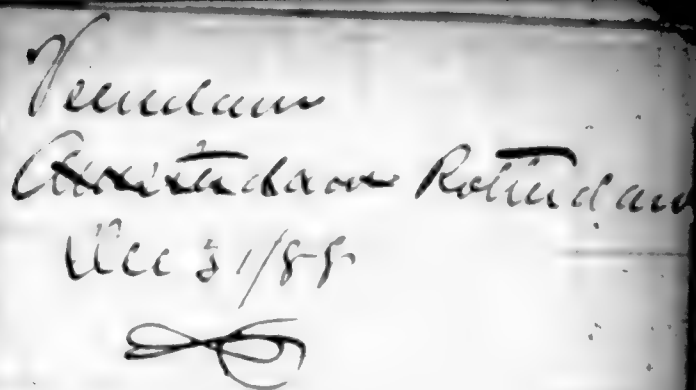 Veendam
Amsterdam Rotterdam
Dec 31/88